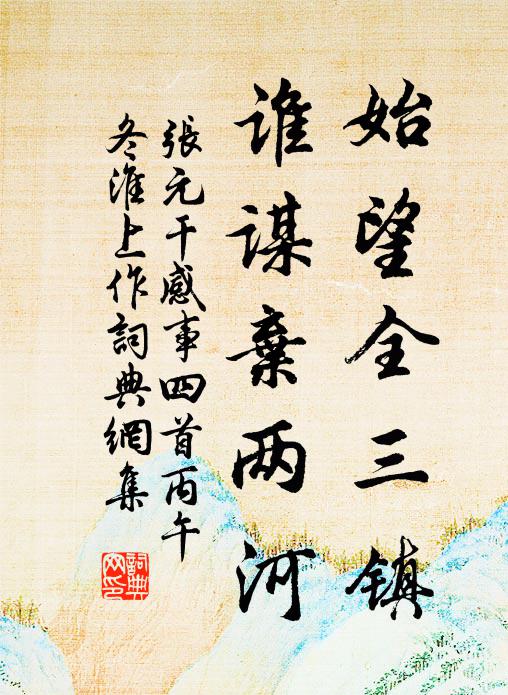 始望全三镇
谁谋弃两河
張元干感事四首丙午
冬淮上作詞典網集
詞典
网印